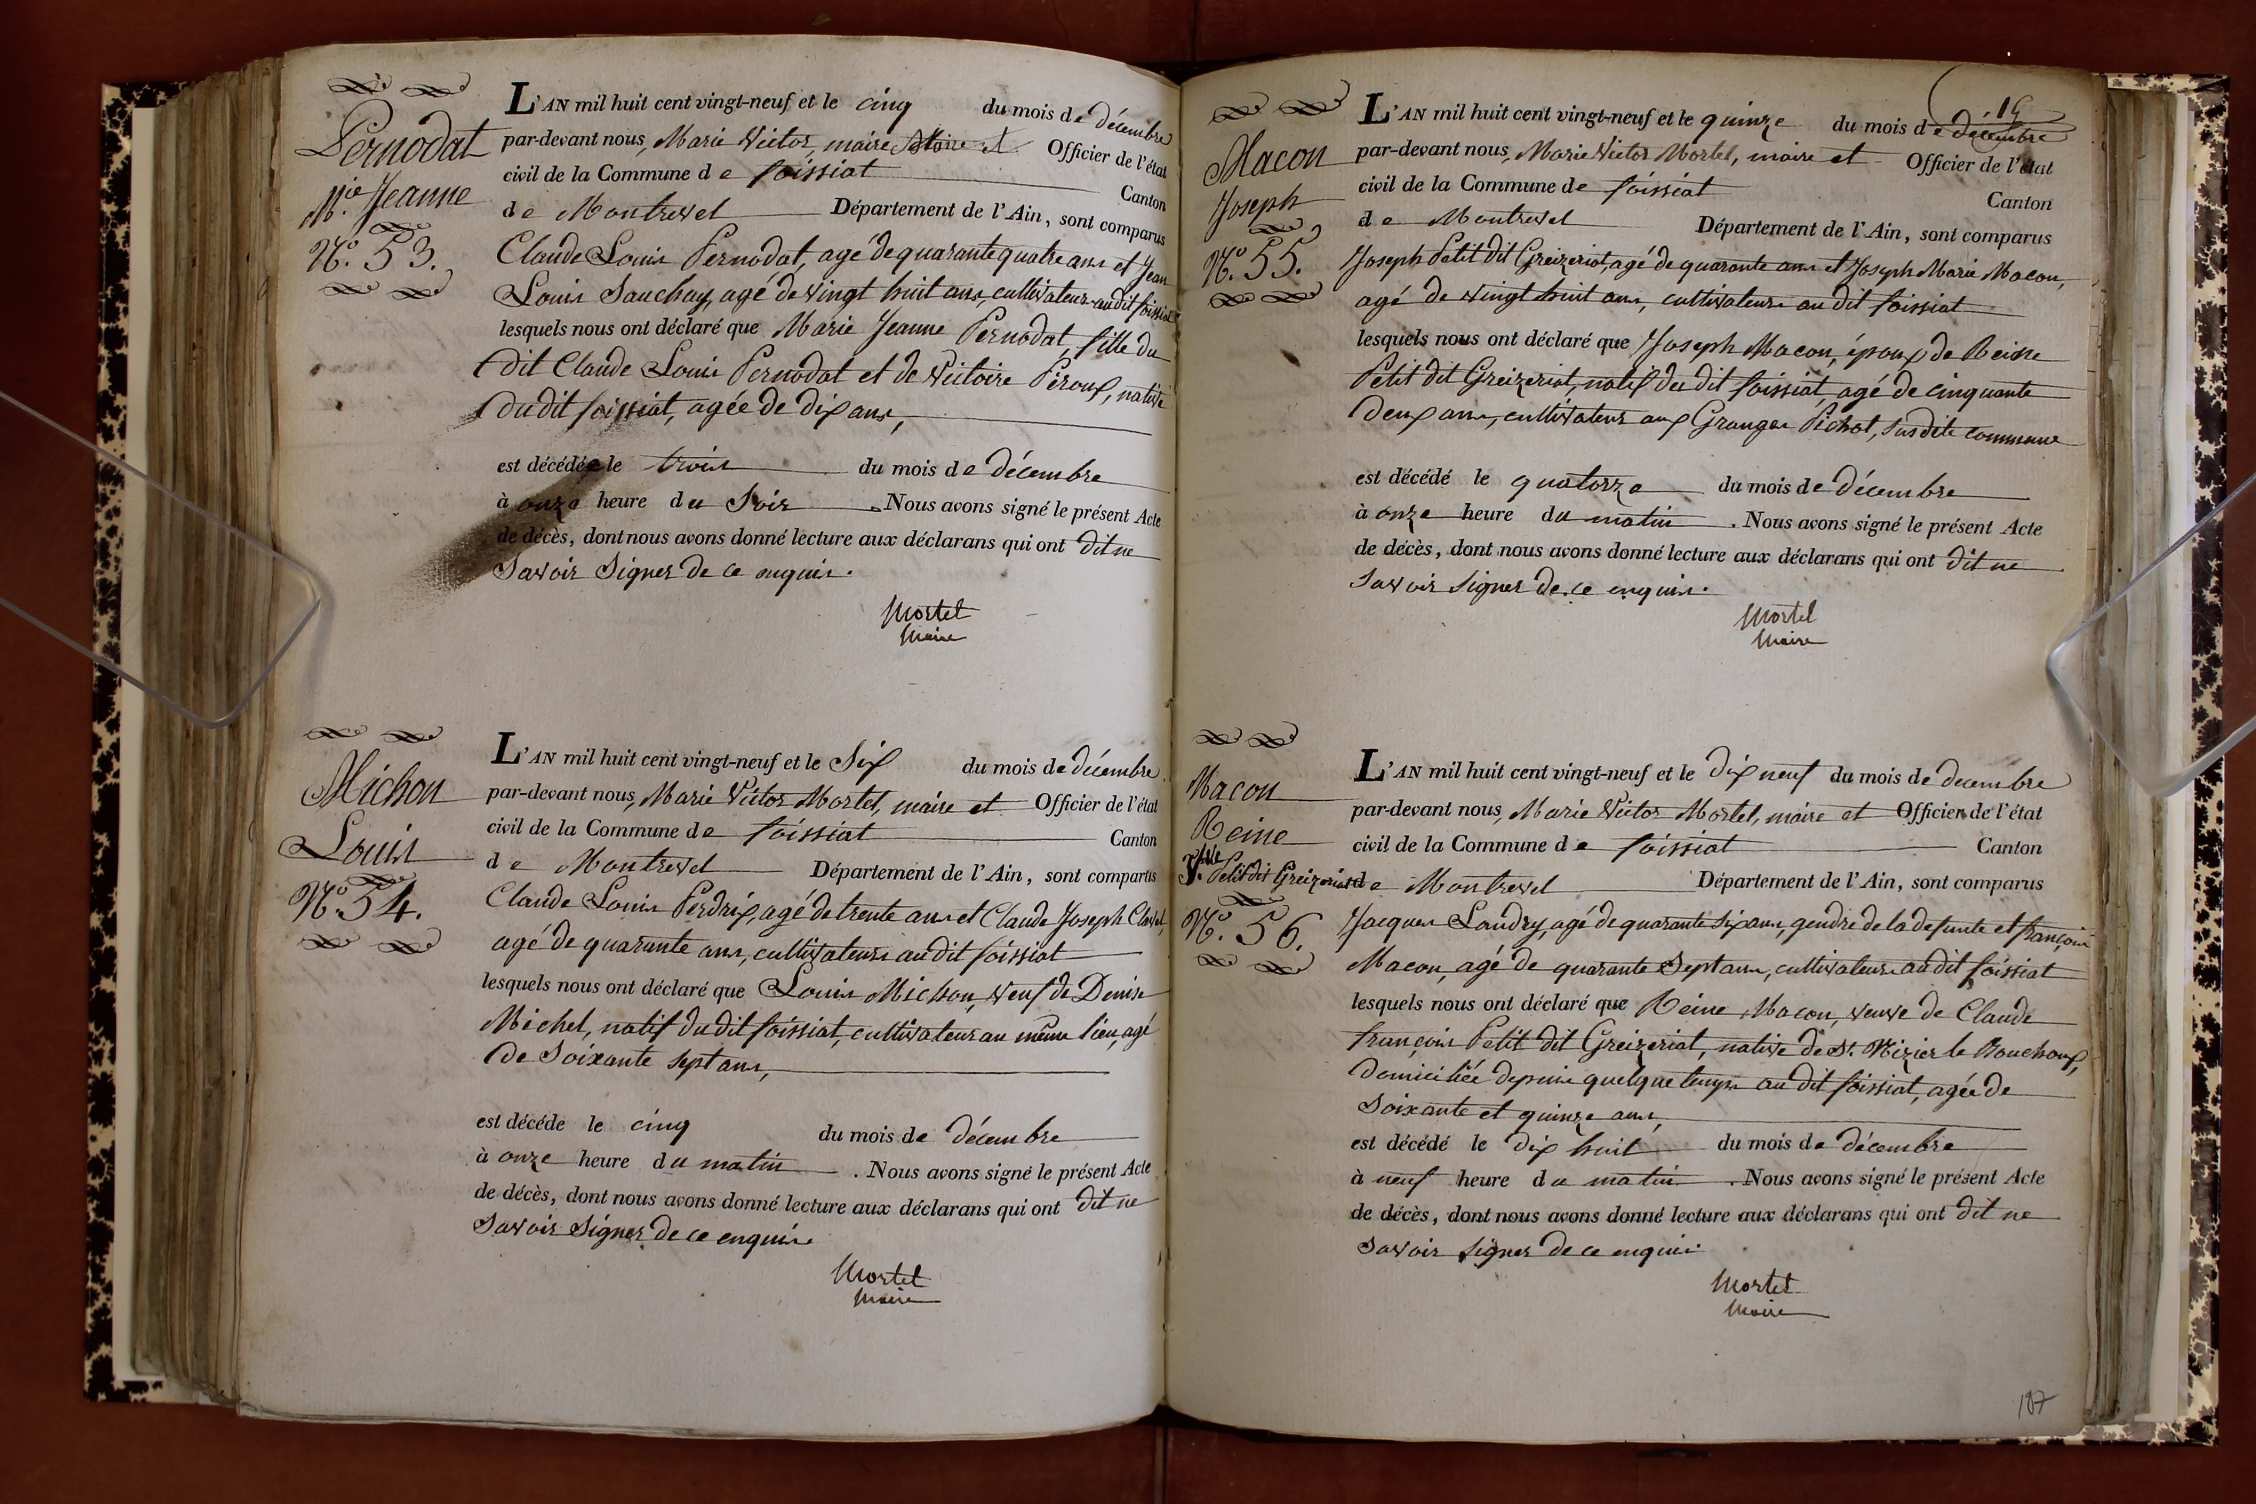 Pernodat
M.ie Jeanne
N.o 53.
L'AN mil huit cent vingt-neuf et le cinq du mois de décembre
par-devant nous, Marie Victor, maire et Officier de l'état
civil de la Commune de foissiat Canton
de Montrevel Département de l'Ain, sont comparus
Claude Louis Pernodat, agé de quarante quatre ans et Jean
Louis Sauchay, agé de vingt huit ans, cultivateurs au dit foissiat
lesquels nous ont déclaré que Marie Jeanne Pernodat, fille du
dit Claude Louis Pernodat et de Victoire Piroux, native
du dit foissiat, agée de dix ans,
est décédée le trois du mois de décembre
à onze heure du Soir . Nous avons signé le présent Acte
de décès, dont nous avons donné lecture aux déclarans qui ont dit ne
Savoir Signer de ce enquis.
Mortel
Maire
Michon
Louis
N.o 54.
L'AN mil huit cent vingt-neuf et le Six du mois de décembre
par-devant nous, Marie Victor Mortel, maire et Officier de l'état
civil de la Commune de foissiat Canton
de Montrevel Département de l'Ain, sont comparus
Claude Louis Perdrix, agé de trente ans et Claude Joseph Clavel,
agé de quarante ans, cultivateurs au dit foissiat
lesquels nous ont déclaré que Louis Michon, veuf de Denise
Michel, natif du dit foissiat, cultivateur au même lieu, agé
de Soixante sept ans,
est décéde le cinq du mois de décembre
à onze heure du matin . Nous avons signé le présent Acte
de décès, dont nous avons donné lecture aux déclarans qui ont dit ne
Savoir Signer de ce enquis.
Mortel
Maire
15
Macon
Joseph
N.o 55.
L'AN mil huit cent vingt-neuf et le quinze du mois de décembre
par-devant nous, Marie Victor Mortel, maire et Officier de l'état
civil de la Commune de foissiat Canton
de Montrevel Département de l'Ain, sont comparus
Joseph Petit dit Greizeriat, agé de quarante ans et Joseph Marie Macon,
agé de vingt huit ans, cultivateurs au dit foissiat
lesquels nous ont déclaré que Joseph Macon, époux de Reine
Petit dit Greizeriat, natif du dit foissiat, agé de cinquante
deux ans, cultivateur aux Granges Pichot, susdite commune
est décédé le quatorze du mois de décembre
à onze heure du matin . Nous avons signé le présent Acte
de décès, dont nous avons donné lecture aux déclarans qui ont dit ne
Savoir signer de ce enquis.
Mortel
Maire
Macon
Reine
Petit dit Greizeriat
N.o 56.
L'AN mil huit cent vingt-neuf et le dix neuf du mois de decembre
par-devant nous, Marie Victor Mortel, maire et Officier de l'état
civil de la Commune de foissiat Canton
de Montrevel Département de l'Ain, sont comparus
Jacques Landry, agé de quarante six ans, gendre de la defunte et françois
Macon, agé de quarante Sept ans, cultivateurs au dit foissiat
lesquels nous ont déclaré que Reine Macon, veuve de Claude
françois Petit dit Greizeriat, native de St. Nizier le Bouchoux,
domiciliée depuis quelque temps au dit foissiat, agée de
Soixante et quinze ans,
est décédé le dix huit du mois de décembre
à neuf heure du matin . Nous avons signé le présent Acte
de décès, dont nous avons donné lecture aux déclarans qui ont dit ne
Savoir Signer de ce enquis.
Mortel
Maire
187